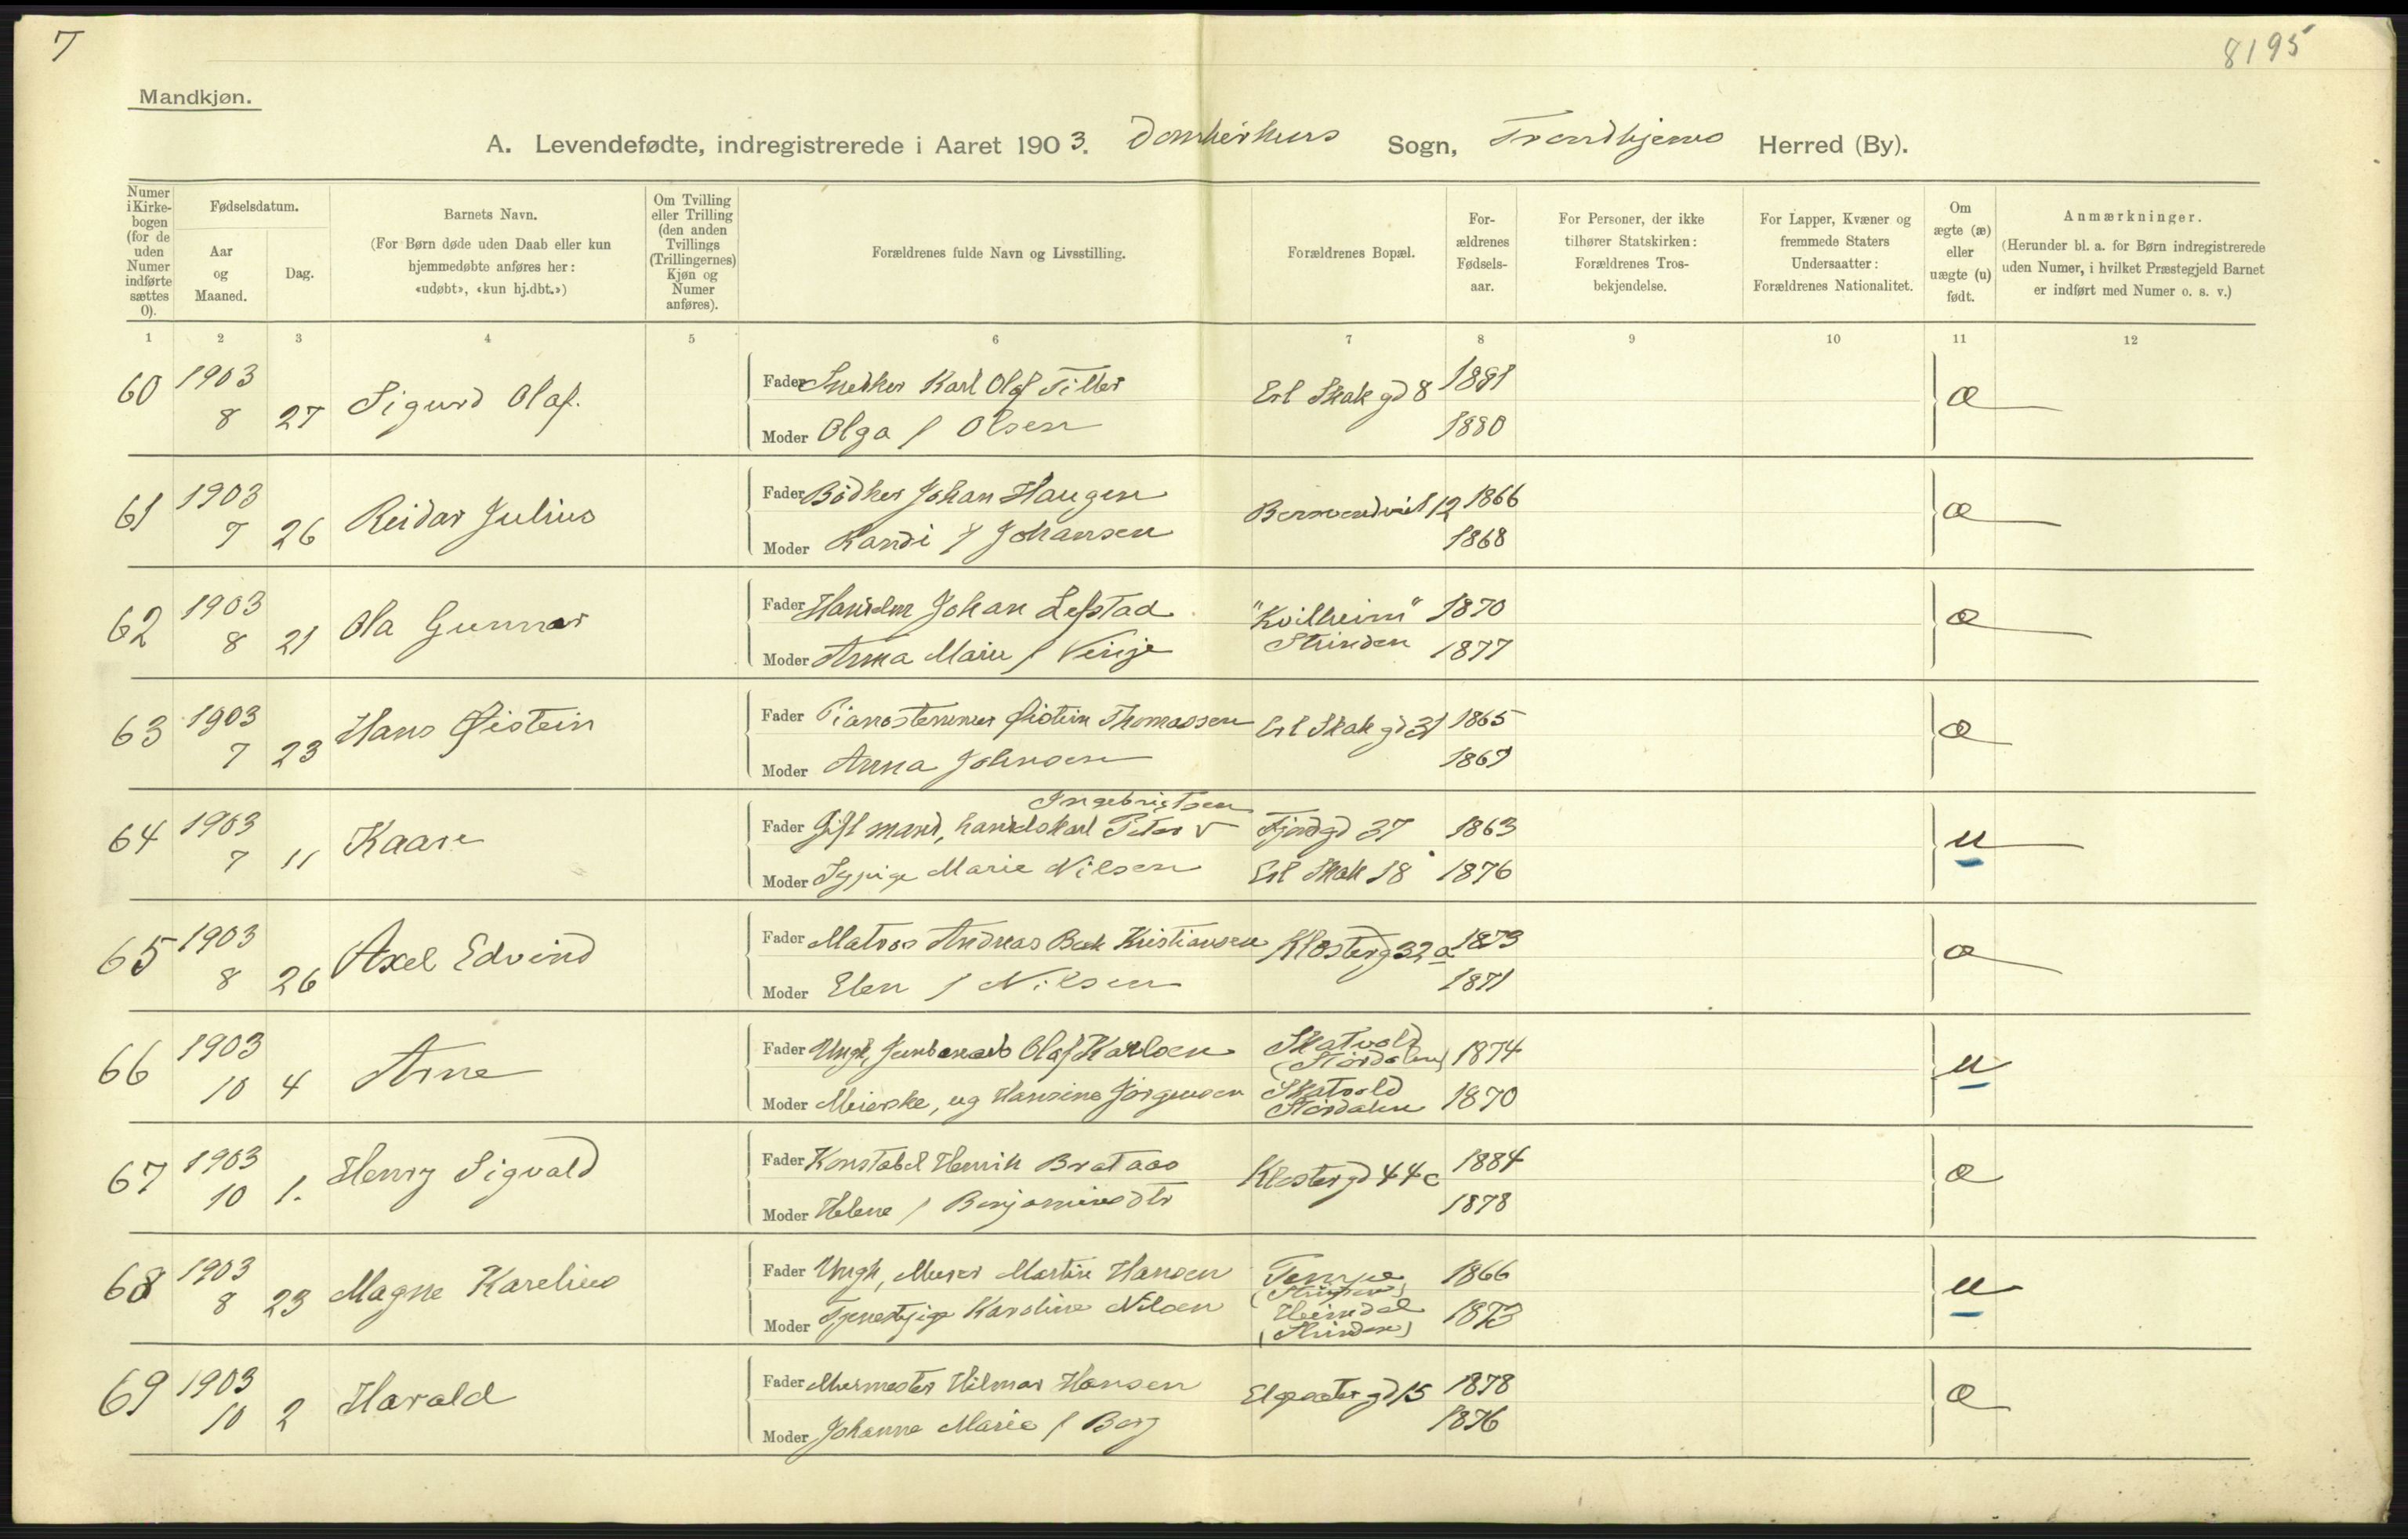 7
8195
Mandkjøn.
A. Levendefødte, indregistrerede i Aaret 1903. Domkirkens Sogn, Trondhjems Herred (By).
Numer i Kirkebogen (for de uden Numer indførte sættes 0).
Fødselsdatum.
Aar og Maaned.
Dag.
Barnets Navn.
(For Børn døde uden Daab eller kun hjemmedøbte anføres her: «udøbt», «kun hj.dbt.»)
Om Tvilling eller Trilling (den anden Tvillings (Trillingernes) Kjøn og Numer anføres).
Forældrenes fulde Navn og Livsstilling.
Forældrenes Bopæl.
For-ældrenes Fødsels-aar.
For Personer, der ikke tilhører Statskirken: Forældrenes Tros-bekjendelse.
For Lapper, Kvæner og fremmede Staters Undersaatter: Forældrenes Nationalitet.
Om ægte (æ) eller uægte (u) født.
Anmærkninger.
(Herunder bl. a. for Børn indregistrerede uden Numer, i hvilket Præstegjeld Barnet er indført med Numer o. s. v.)
1 2 3 4 5 6 7 8 9 10 11 12
60 1903 8 27 Sigurd Olaf.
Fader Snedker Karl Olaf Tiller Erl Skak gd 8 1881 æ
Moder Olga f Olsen 1880
61 1903 7 26 Reidar Julius
Fader Bödker Johan Haugen 12 1866 æ
Moder Randi f Johansen 1868
62 1903 8 21 Ola Gunnar
Fader Handelm Johan Lefstad "Kvilheim" 1870 æ
Moder Anna Marie f Strinden 1877
63 1903 7 23 Hans Øistein
Fader Pianostemmer Øistein Thomassen Erl Skak gd 31 1865 æ
Moder Anna Johnsen 1867
64 1903 7 11 Kaare
Ingebrigtsen
Fader Gift mand, handelskarl Peter v Fjordgd 37 1863 u
Moder Marie Nilsen Erl Skak 18 1876
65 1903 8 26 Axel Edvind
Fader Matros Andreas Beck Kristiansen Klosterg 32 a 1873 æ
Moder Elen f Nilsen 1871
66 1903 10 4 Arne
Fader Ungk, Jernbanearb Olaf Karlsen Skatvold (Størdalen) 1874 u
Moder Meierske, ug Hansine Jörgensen Skatvold Størdalen 1870
67 1903 10 1. Henry Sigvald
Fader Konstabel Henrik Brataas Klostergd 44 c 1884 æ
Moder Helene f Benjaminsdtr 1878
68 1903 8 23 Magne Karelius
Fader Ungk, Murer Martin Hansen Tempe (Strinden) 1866 u
Moder Tjenestpige Karoline Nilsen Heimdal (Strinden) 1873
69 1903 10 2 Harald
Fader Murmester Hilmar Hansen Elgesetergd 15 1878 æ
Moder Johanna Marie f Berg 1876